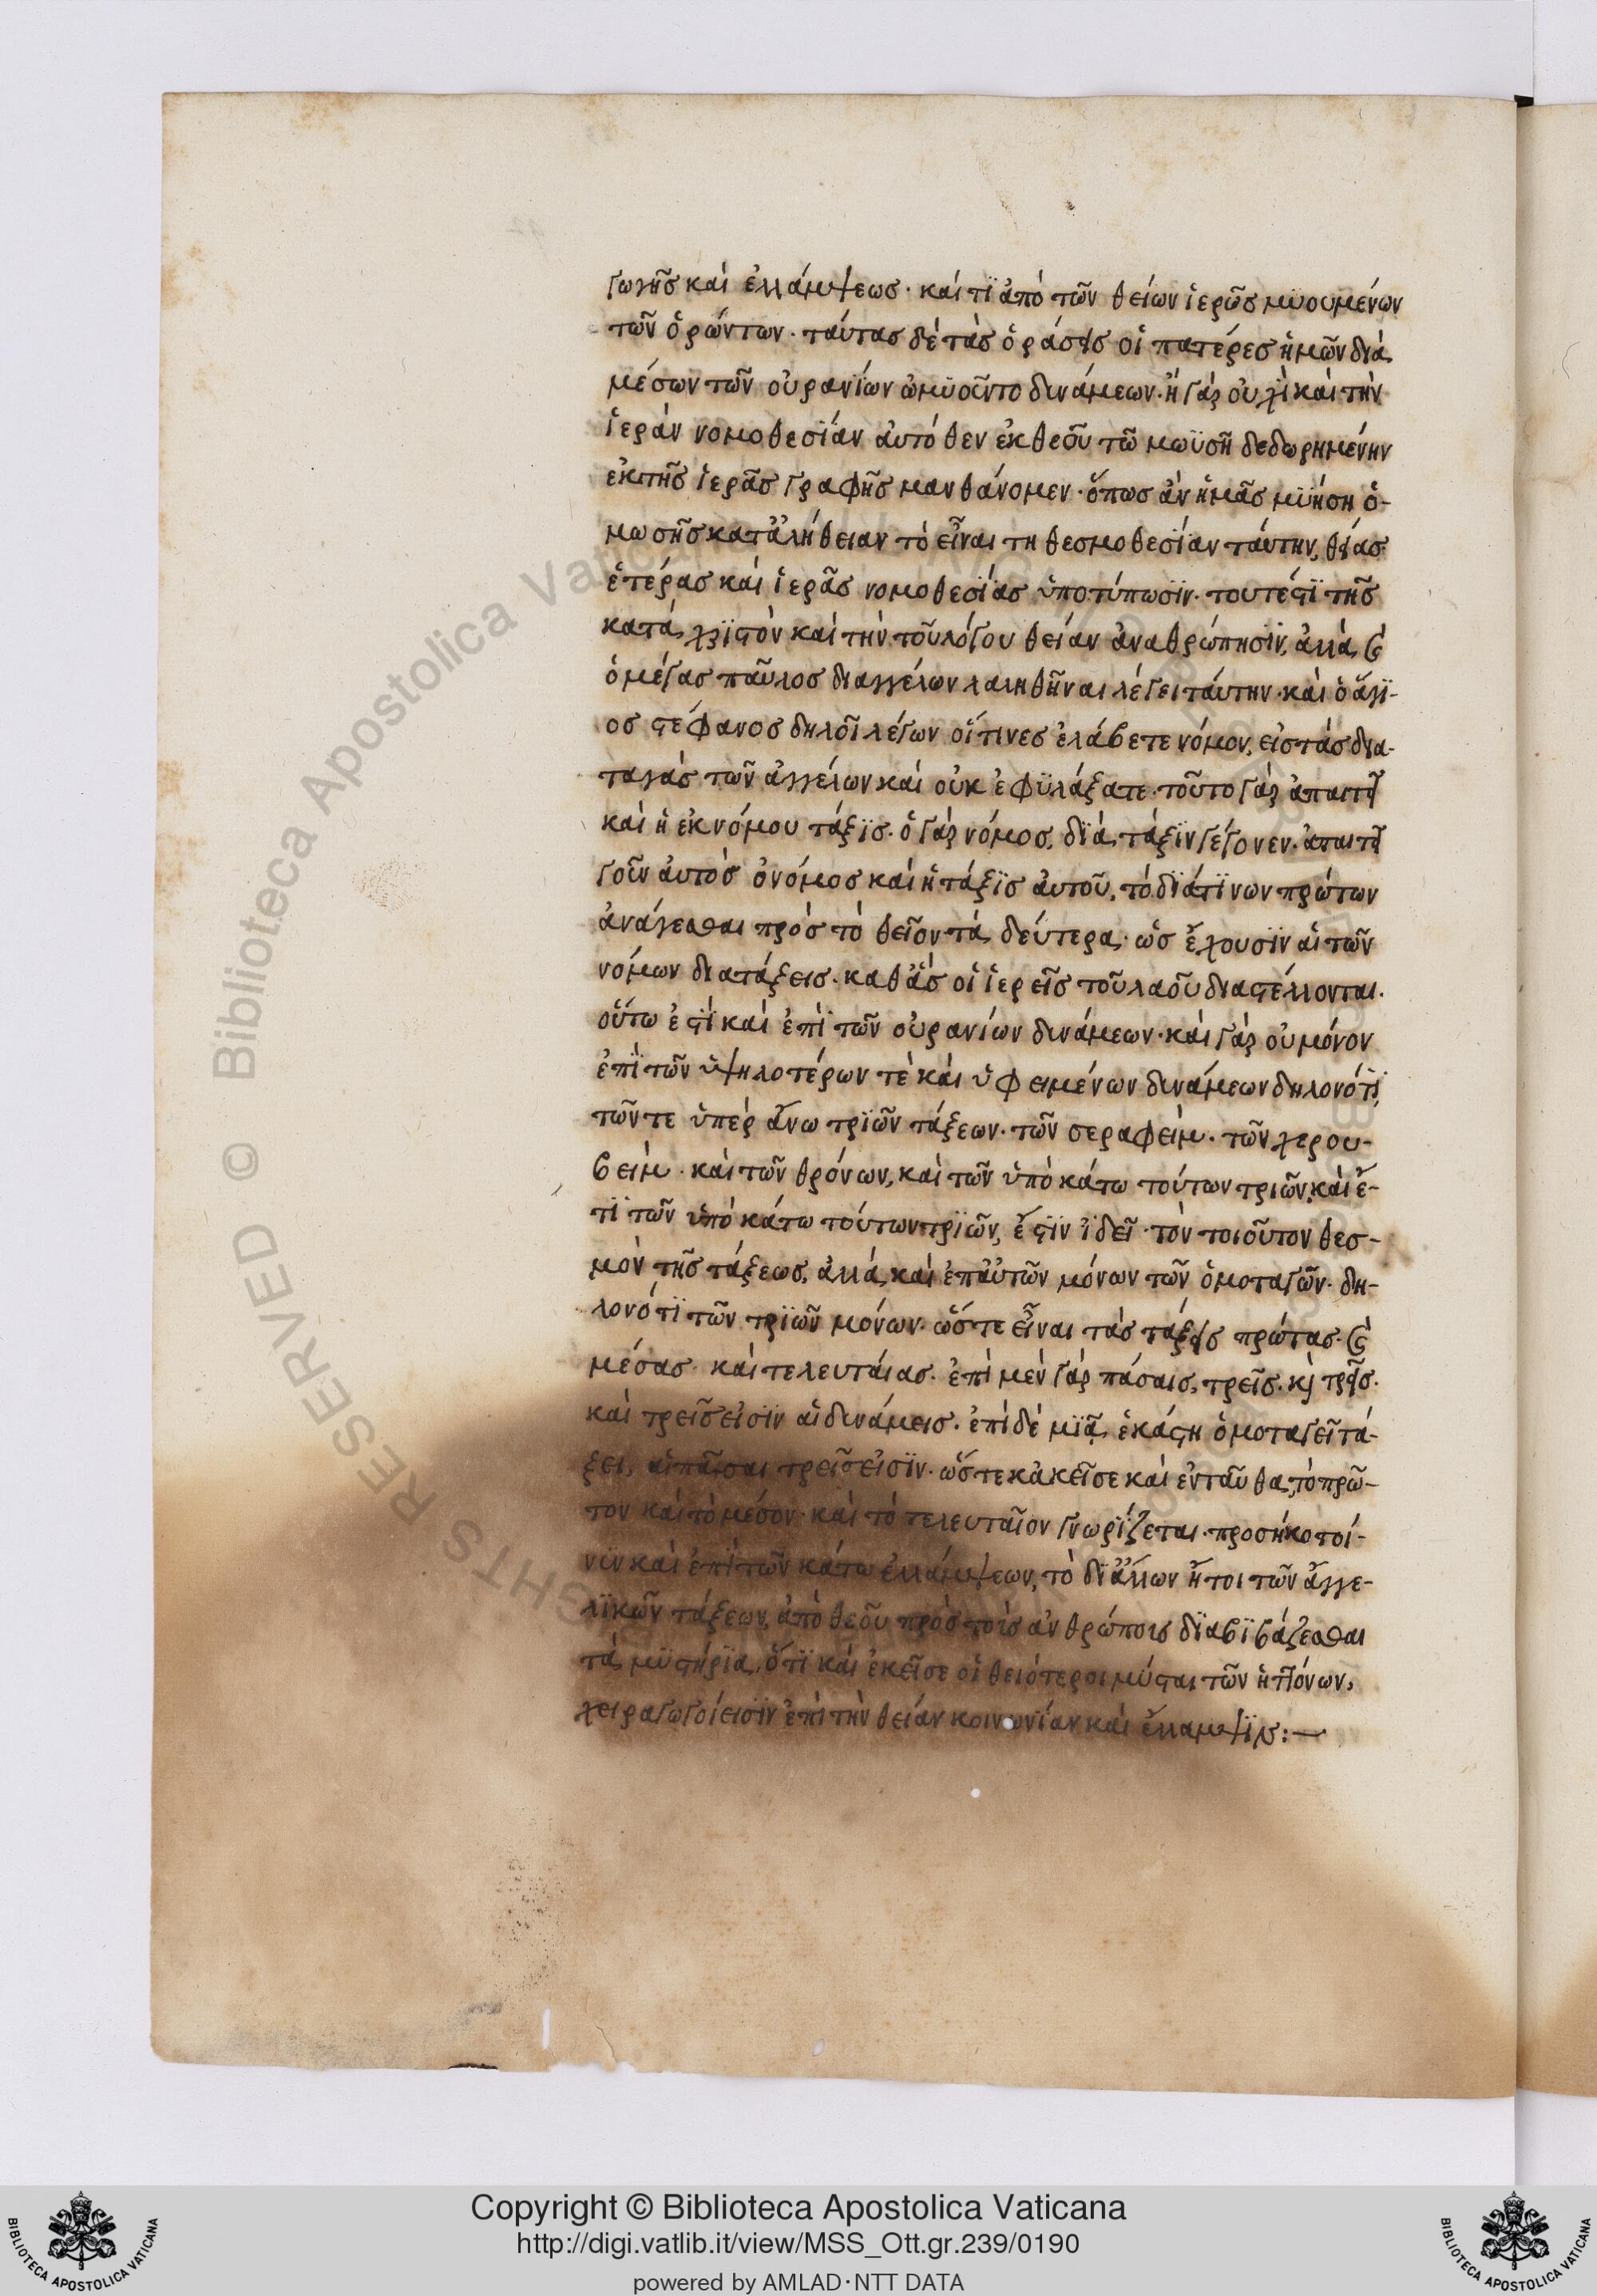 γωγῆσ καὶ ἐλλάμψεωσ· καί τϊ ἀπὸ τῶν θείων ἱερῶσ μϋουμένων
τῶν ὁρώντων· ταύτασ δὲ τὰσ ὁράσεισ οἱ πατέρεσ ἡμῶν διὰ
μέσων τῶν οὐρανίων ὠμϋοῦντο δινάμεων· ἢ γὰρ οὐχὶ καὶ τὴν
ἱερὰν νομοθεσΐαν αὐτόθεν ἐκ θεοῦ τῶ μωϋσῆ δεδωρημένην
ἐκ τῆσ ἱερᾶσ γραφῆσ μανθάνομεν· ὅπωσ ἂν ἡμᾶσ μϋήση ὁ-
μωσῆσ κατἀλήθειαν τὸ εἶναι τη θεσμοθεσΐαν ταύτην, θείασ
ἑτέρασ καὶ ἱερᾶσ νομοθεσΐασ ὑποτύπωσϊν· τουτέστϊ τῆσ
κατὰ χρϊστὸν καὶ τὴν τοῦ λόγου θείαν ἀναθρώπησϊν, ἀλλὰ καὶ
ὁ μέγασ παῦλοσ διαγγέλων λαληθῆναι λέγει ταύτην· καὶ ὁ ἅγϊ-
οσ στέφανοσ δηλοῖ λέγων οἵτινεσ ἐλάβετε νόμον, εἰσ τὰσ δια-
ταγὰσ τῶν ἀγγέλων καὶ οὐκ ἐφϋλάξατε· τοῦτο γὰρ ἀπαιτεῖ
καὶ ἡ ἐκ νόμου τάξϊσ· ὁ γὰρ νόμοσ, δϊὰ τάξϊν γέγονεν· ἀπαιτεῖ
γοῦν ἀυτὸσ ὁνόμοσ καὶ ἡ τάξϊσ ἀυτοῦ, τὸ δϊάτϊνων πρώτων
ἀνάγεσθαι πρὸσ τὸ θεῖον τὰ δεύτερα· ὡσ ἔχουσϊν αἱ τῶν
νόμων διατάξεισ· καθἃσ οἱ ἱερεῖσ τοῦ λαοῦ διαστέλλονται·
οὕτω ἐστΐ καὶ ἐπὶ τῶν οὐρανίων δινάμεων· καὶ γὰρ οὐ μόνον
ἐπῒ τῶν ὑψηλοτέρων τὲ καὶ ὑφειμένων δινάμεων δηλονότϊ,
τῶν τε ὑπὲρ ἄνω τρϊῶν τάξεων· τῶν σεραφεὶμ· τῶν χερου-
βεὶμ· καὶ τῶν θρόνων, καὶ τῶν ὑπὸ κάτω τούτων τριῶν, καὶ ἔ-
τϊ τῶν ὑπὸ κάτω τούτων τρϊῶν, ἔστϊν ἰδεῖ· τὸν τοιοῦτον θεσ-
μὸν τῆσ τάξεωσ, ἀλλὰ καὶ ἐπἀυτῶν μόνων τῶν ὁμοταγῶν· δη-
λονότϊ τῶν τρϊῶν μόνων· ὥστε εἶναι τὰσ τάξεισ πρώτασ· καὶ
μέσασ· καὶ τελευτάιασ· ἐπὶ μὲν γὰρ πάσαισ, τρεῖσ· κ̀ τρεῖσ·
καὶ τρεῖσ εἰσϊν αἱ δινάμεισ· ἐπὶ δὲ μϊᾶ, ἑκάστη ὁμοταγεῖ τά-
ξει, αἱ πᾶσαι τρεῖσ εἰσϊν· ὥστε κἀκεῖσε καὶ ἐνταῦθα, τὸ πρῶ-
τον καὶ τὸ μέσον· καὶ τὸ τελευταῖον γνωρΐζεται· προσῆκο τοί-
νϊν καὶ ἐπῒ τῶν κάτω ἐλλάμψεων, τὸ δϊἄλλων ἤτοι τῶν ἀγγε-
λϊκῶν τάξεων, ἀπὸ θεοῦ πρὸσ τοῖσ ἀνθρώποισ δϊαβϊβάζεσθαι
τὰ μϋστήρϊα, ὅτϊ καὶ ἐκεῖσε οἱ θειότεροι μύσται τῶν ἡττόνων,
χειραγωγοί εισϊν ἐπὶ τὴν θείαν κοινωνΐαν καὶ ἔλλαμψϊν:—
Copyright © Biblioteca Apostolica Vaticana
http://digi.vatlib.it/view/MSS_Ott.gr.239/0190
powered by AMLAD·NTT DATA